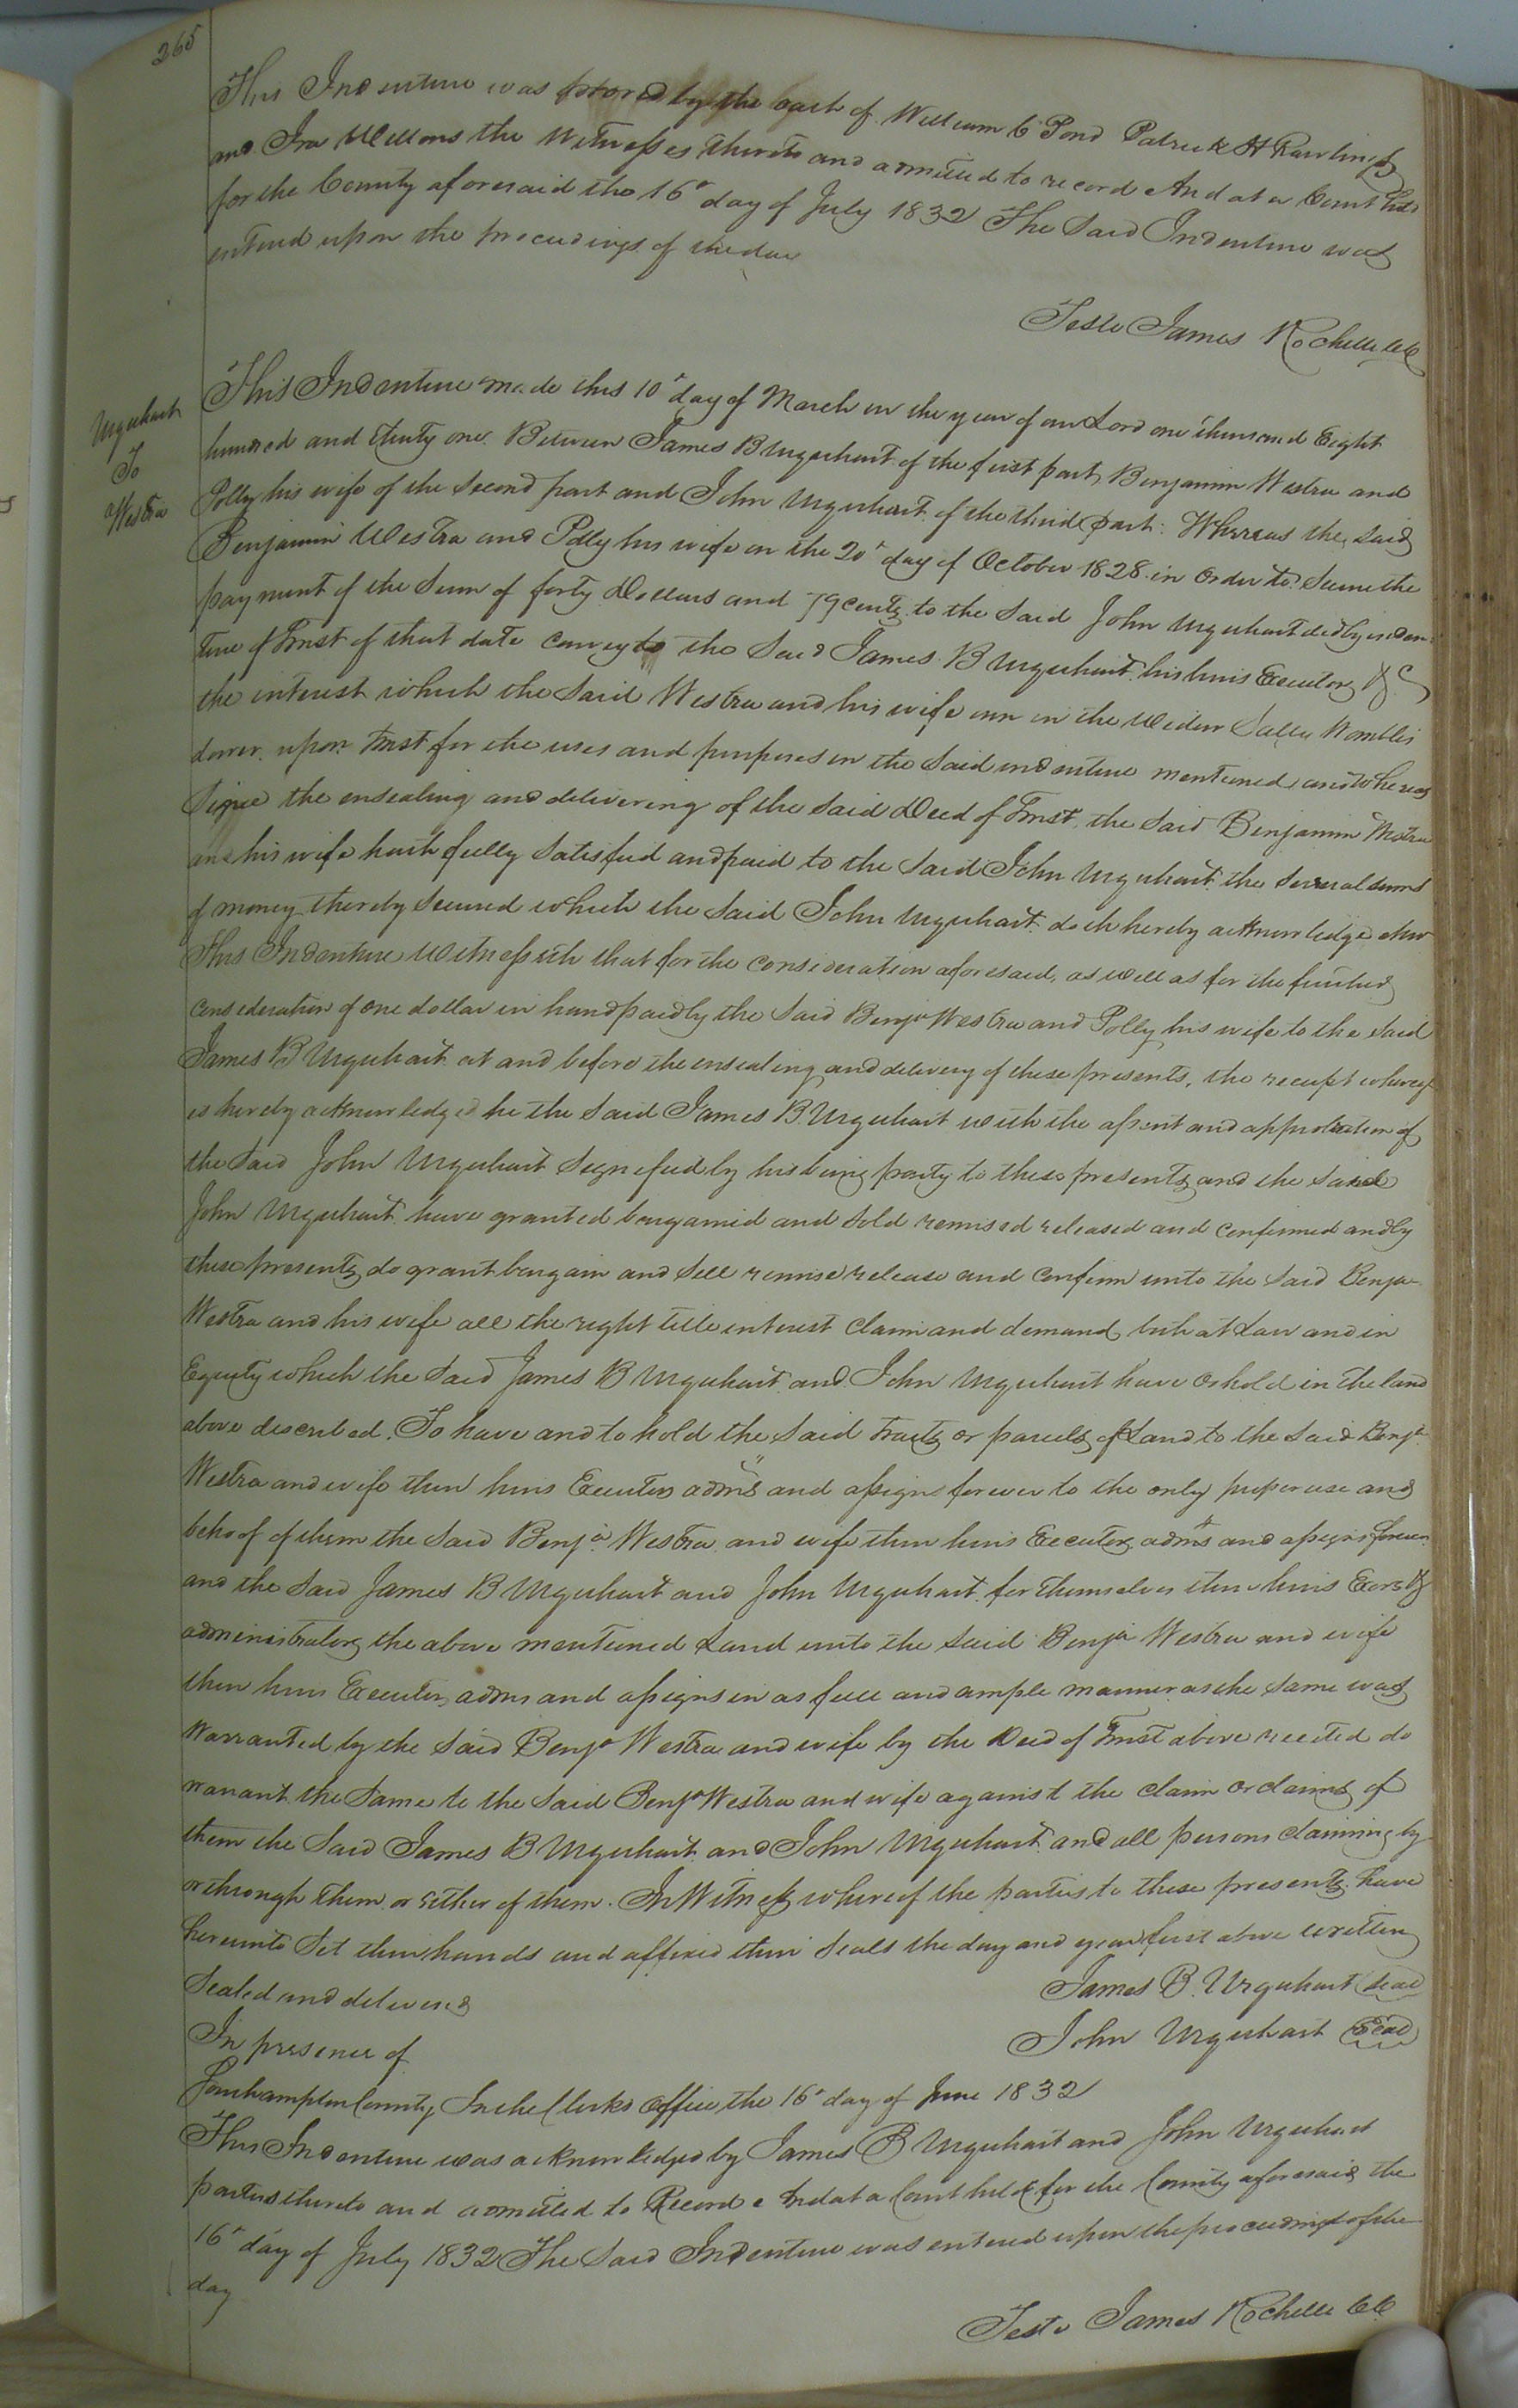 265
This Indenture was proved by the oath of William C Pond Patrick H Rawlings
and Ira Wellons the Witnesses thereto and admitted to record And at a Court held
for the County aforesaid the 16th day of July 1832 The Said Indenture was
entered upon the proceedings of the day
Teste James Rochelle CC
Urquhart
To
Westra
This Indenture made this 10th day of March in the year of our Lord one thousand Eight
hundred and thirty one Between James B Urquhart of the first part, Benjamin Westra and
Polly his wife of the Second part and John Urquhart of the third part: Whereas the said
Benjamin Westra and Polly his wife on the 20th day of October 1828 in order to Secure the
payment of the Sum of forty Dollars and 79 cents to the Said John Urquhart did by inden
ture of Trust of that date convey to the Said James B Urquhart his heirs Executors &c
the interest which the Said Westra and his wife own in the Widow Salley Wombles
dower upon trust for the uses and purposes in the Said indenture mentioned, and Whereas
Since the ensealing and delivering of the Said Deed of Trust the Said Benjamin Westra
and his wife hath fully Satisfied and paid to the Said John Urquhart the Several sums
of money thereby Secured which the Said John Urquhart doth hereby acknowledge Now
This Indenture Witnesseth that for the consideration aforesaid, as well as for the further
consideration of one dollar in hand paid by the Said Benja Westra and Polly his wife to the Said
James B Urquhart at and before the ensealing and delivery of these presents, the receipt whereof
is hereby acknowledged he the Said James B Urquhart with the assent and approbation of
the Said John Urquhart Signified by his being party to these presents and the Said
John Urquhart have granted bargained and Sold remised released and confirmed and by
these presents do grant bargain and Sell remise release and Confirm unto the Said Benja
Westra and his wife all the right title interest Claim and demand both at Law and in
Equity which the Said James B Urquhart and John Urquhart have or hold in the land
above described. To have and to hold the Said tracts or parcels of Land to the Said Benja
Westra and wife their heirs Executors adms and assigns forever to the only proper use and
behoof of them the Said Benja Westra and wife their heirs Executors adms and assigns forever
and the Said James B Urquhart and John Urquhart for themselves their heirs Exors &
administrators the above mentioned Land unto the Said Benja Westra and wife
their heirs Executors adms and assigns in as full and ample manner as the Same was
Warranted by the Said Benja Westra and wife by the Deed of Trust above recited do
warrant the Same to the Said Benja Westra and wife against the claim or claims of
them the Said James B Urquhart and John Urquhart and all persons claiming by
or through them or either of them. In Witness whereof the parties to these presents have
hereunto Set their hands and affixed their Seals the day and year first above written
Sealed and delivered
James B. Urquhart Seal
In presence of
John Urquhart Seal
Southampton County, In the Clerks Office the 16th day of June 1832
This Indenture was acknowledged by James B Urquhart and John Urquhart
parties thereto and admitted to Record And at a Court held for the County aforesaid the
16th day of July 1832 The Said Indenture was entered upon the proceedings of the
day
Teste James Rochelle CC